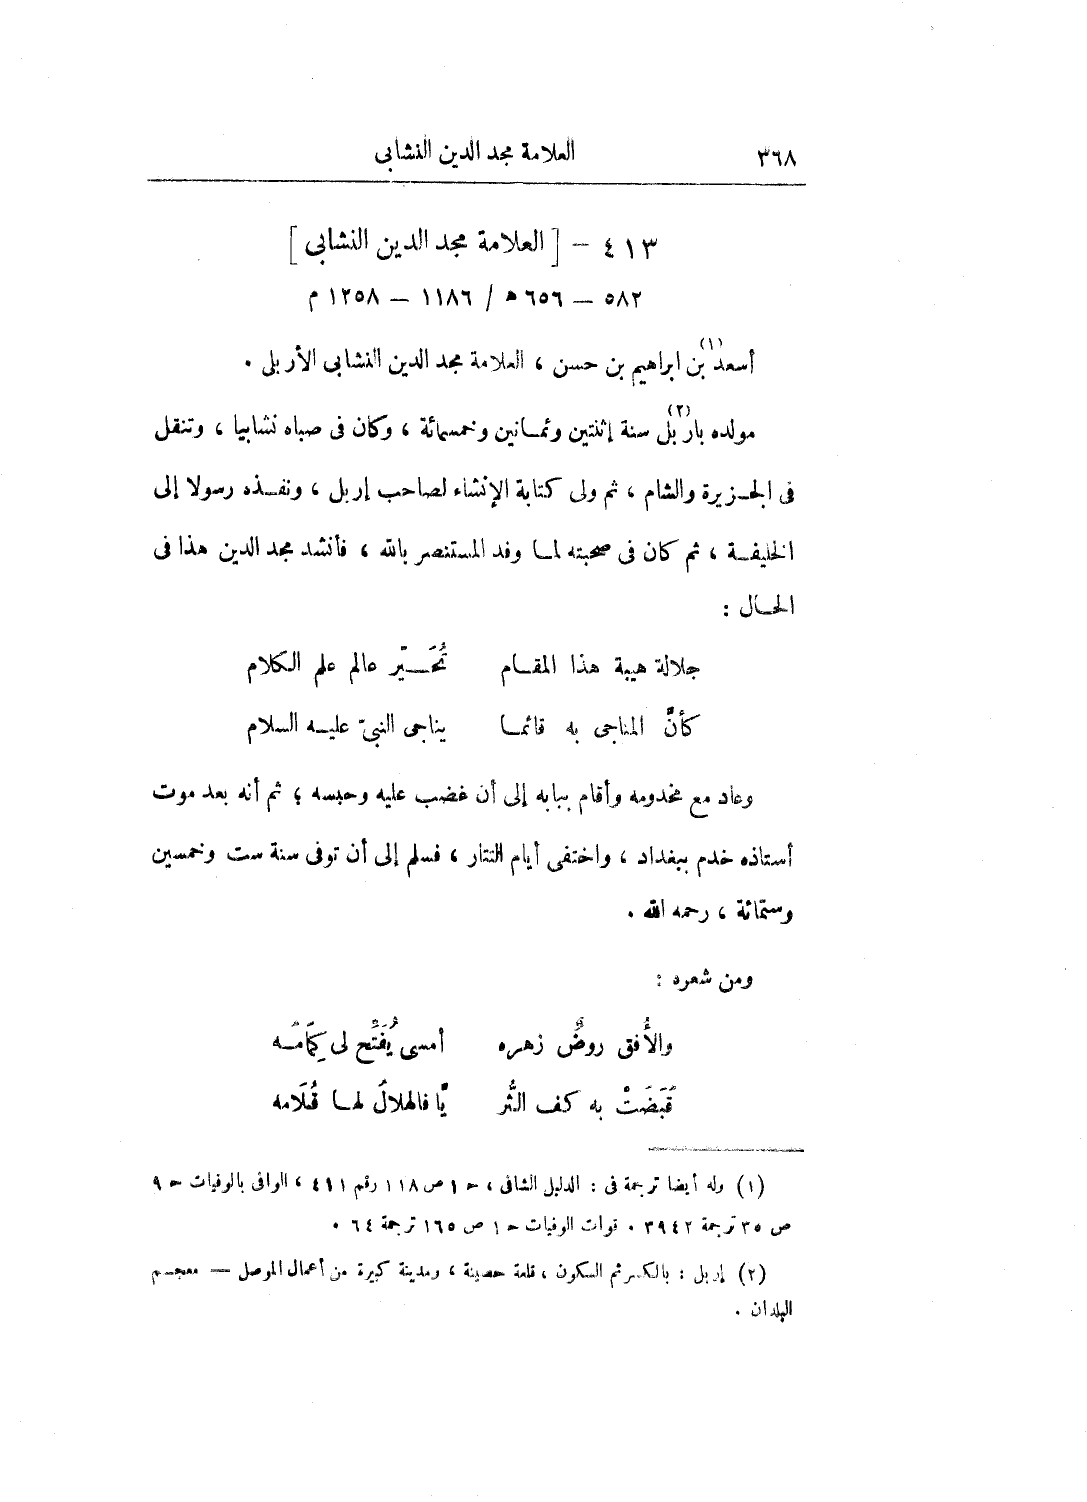 ٣٦٨ العلامة مجد الدين النشابى
٤١٣ – [ العلامة مجد الدين النشابى ]
٥٨٢ – ٦٥٦ ه / ١١٨٦ – ١٢٥٨ م
أسعد(١) بن ابراهيم بن حسن ، العلامة مجد الدين النشابى الأربلى .
مولده باربل(٢) سنة إثنتين وثمانين وخمسمائة ، وكان فى صباه نشابيا ، وتنقل
فى الجزيرة والشام ، ثم ولى كتابة الإنشاء لصاحب إربل ، ونفذه رسولا إلى
الخليفة ، ثم كان فى صحبته لما وفد المستنصر بالله ، فأنشد مجد الدين هذا فى
الحال :
جلالة هيبة هذا المقام تُحَيّر عالم علم الكلام
كأنَّ المناجى به قائما يناجى النبىّ عليه السلام
وعاد مع مخدومه وأقام ببابه إلى أن غضب عليه وحبسه ؛ ثم أنه بعد موت
أستاذه خدم ببغداد ، واختفى أيام التتار ، فسلم إلى أن توفى سنة ست وخمسين
وستمائة ، رحمه الله .
ومن شعره :
والأُفق روضٌ زهره أمسى يُفَتِّح لى كِمَّامُه
قَبَضَتْ به كف الثُّر يَّا فالهلالُ لها قُلَامه
(١) وله أيضا ترجمة فى : الدليل الشافى ، ح ١ ص ١١٨ رقم ٤١١ ، الوافى بالوفيات ح ٩
ص ٣٥ ترجمة ٣٩٤٢ . فوات الوفيات ح ١ ص ١٦٥ ترجمة ٦٤ .
(٢) إربل : بالكسر ثم السكون ، قلعة حصينة ، ومدينة كبيرة من أعمال الموصل — معجم
البلدان .